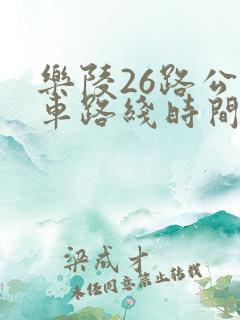 樂陵26路公
車路綫時間
梁成才
未经同意禁止转载